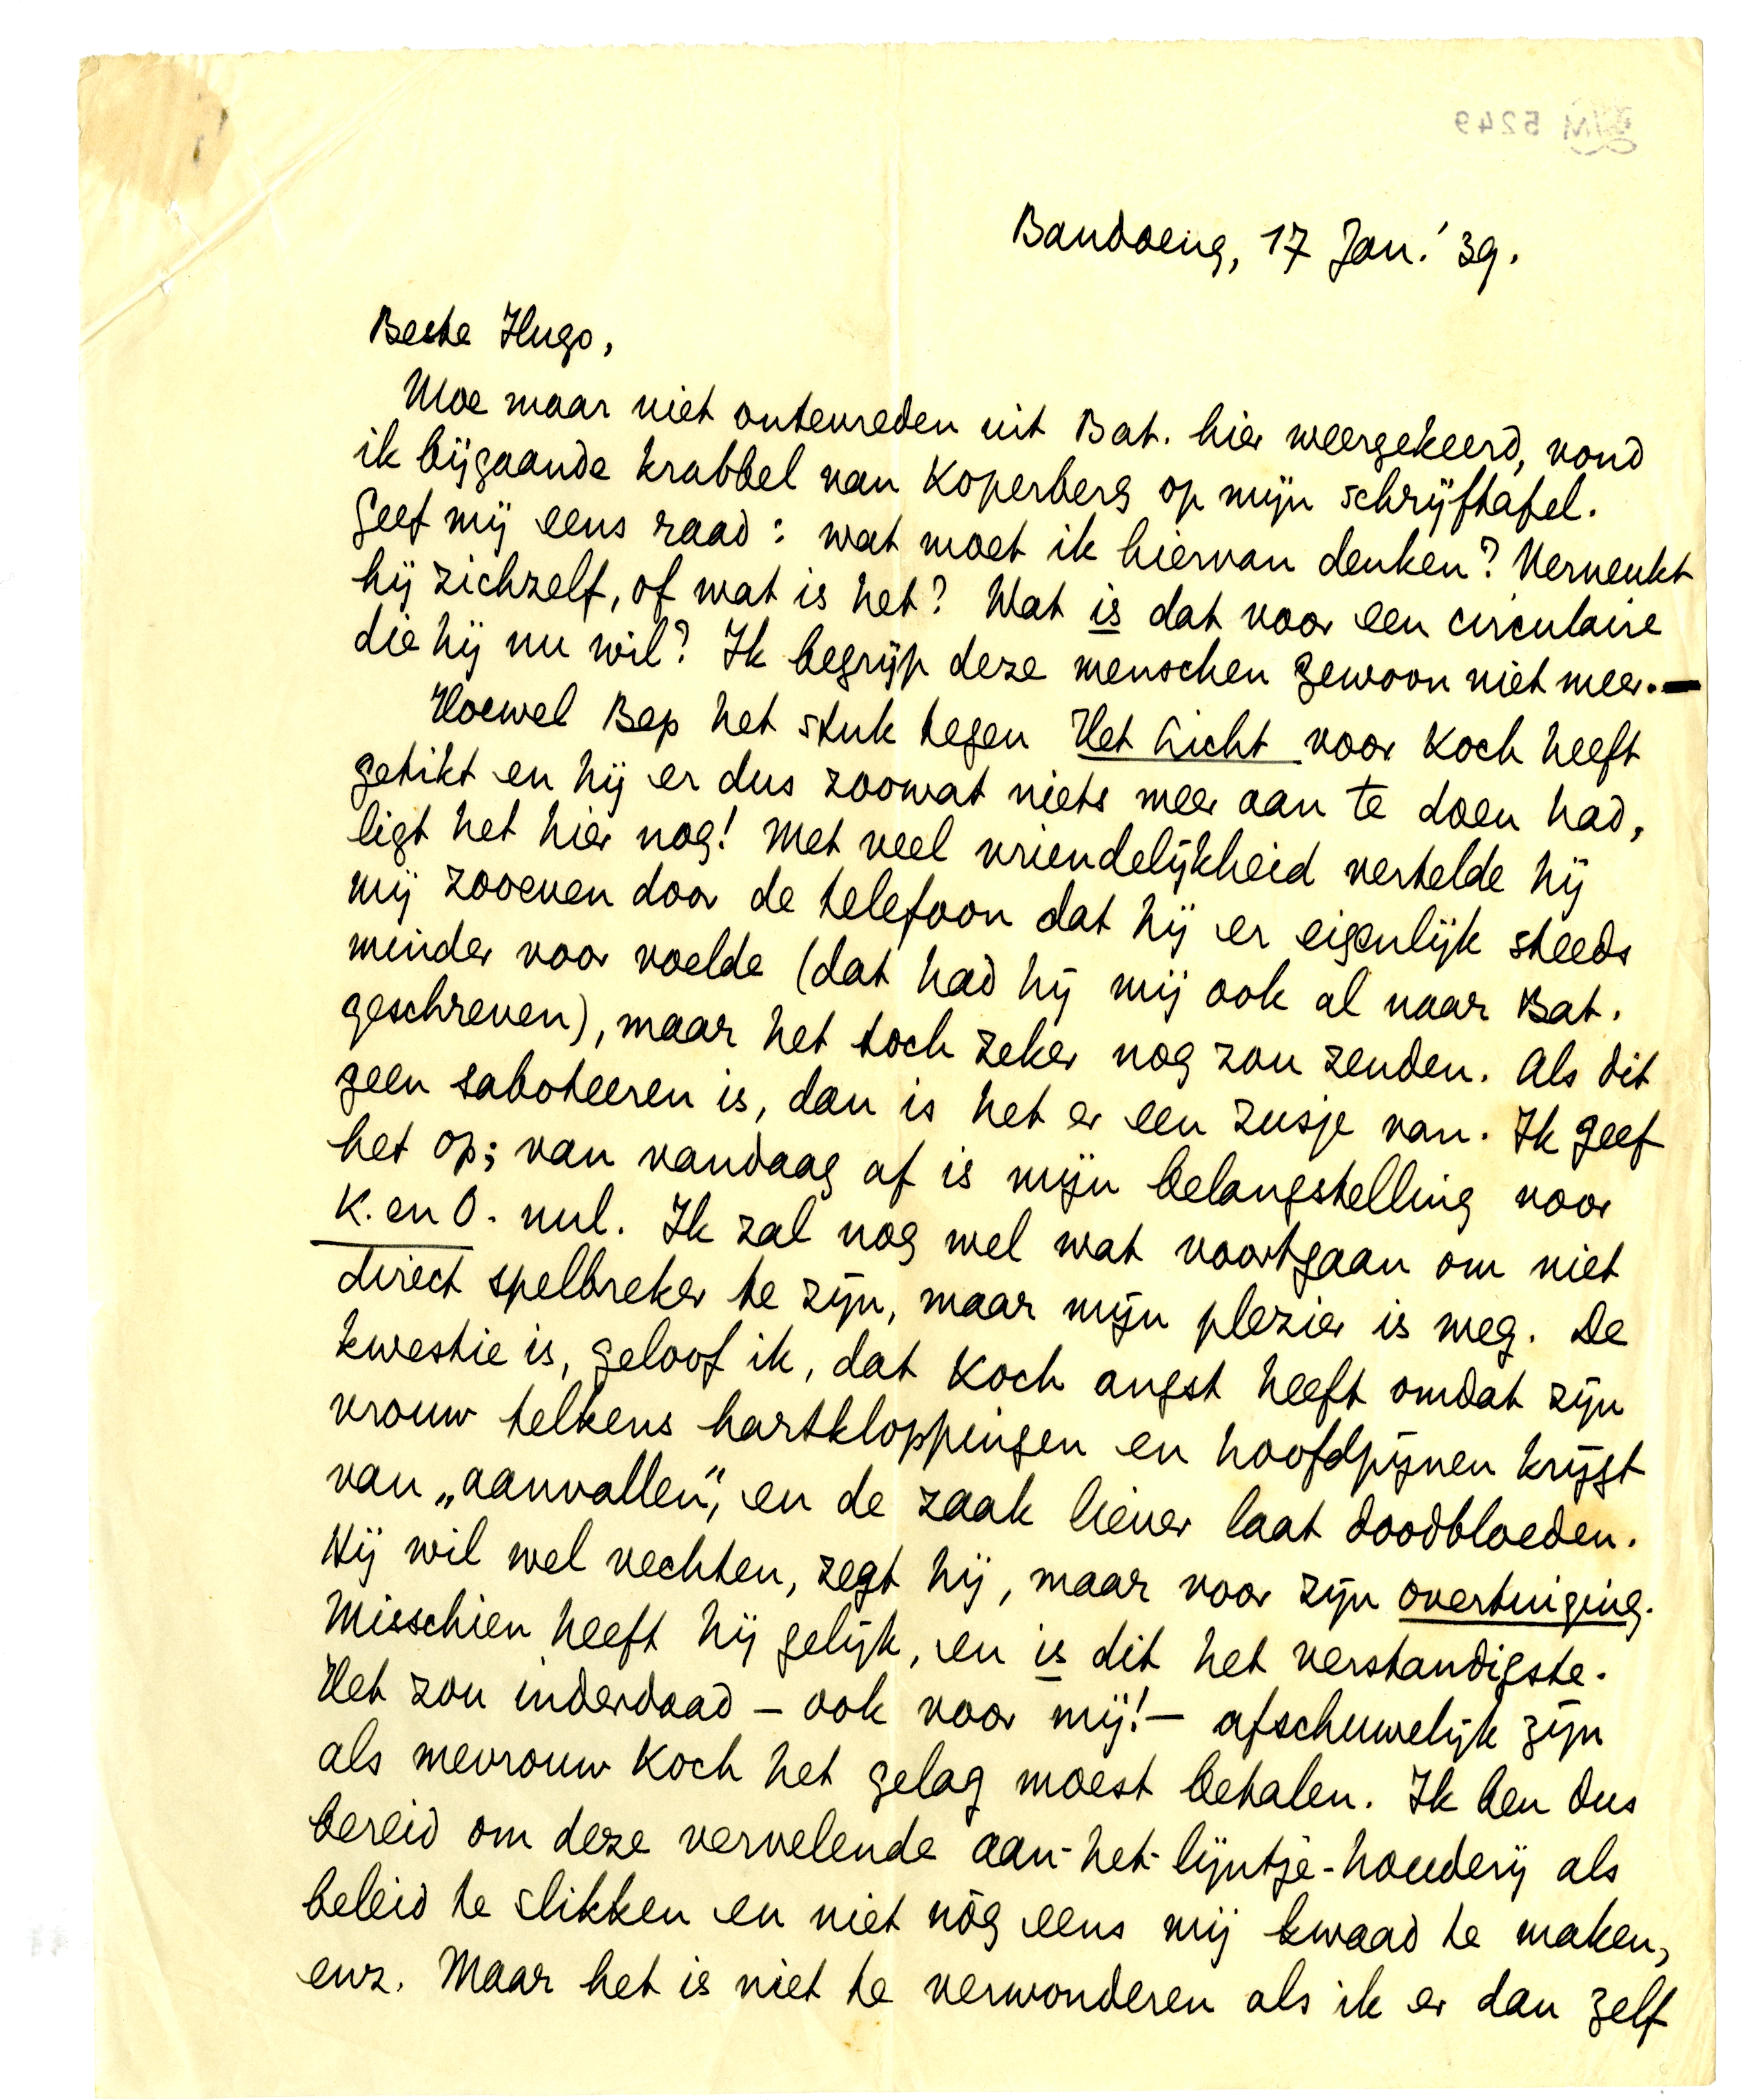 Bandoeng, 17 Jan. '39.
Beste Hugo,
Moe maar niet ontevreden uit Bat. hier weergekeerd, vond
ik bijgaande krabbel van Koperberg op mijn schrijftafel.
Geef mij eens raad: wat moet ik hiervan denken? Verneukt
hij zichzelf, of wat is het? Wat is dat voor een circulaire
die hij nu wil? Ik begrijp deze menschen gewoon niet meer.—
Hoewel Bep het stuk tegen Het Licht voor Koch heeft
getikt en hij er dus zoowat niets meer aan te doen had,
ligt het hier nog! Met veel vriendelijkheid vertelde hij
mij zooeven door de telefoon dat hij er eigenlijk steeds
minder voor voelde (dat had hij mij ook al naar Bat.
geschreven), maar het toch zeker nog zou zenden. Als dit
geen saboteeren is, dan is het er een zusje van. Ik geef
het op; van vandaag af is mijn belangstelling voor
K. en O. nul. Ik zal nog wel wat voortgaan om niet
direct spelbreker te zijn, maar mijn plezier is weg. De
kwestie is, geloof ik, dat Koch angst heeft omdat zijn
vrouw telkens hartkloppingen en hoofdpijnen krijgt
van „aanvallen", en de zaak liever laat doodbloeden.
Hij wil wel vechten, zegt hij, maar voor zijn overtuiging.
Misschien heeft hij gelijk, en is dit het verstandigste.
Het zou inderdaad – ook voor mij! – afschuwelijk zijn
als mevrouw Koch het gelag moest betalen. Ik ben dus
bereid om deze vervelende aan-het-lijntje-houderij als
beleid te slikken en niet nòg eens mij kwaad te maken,
enz. Maar het is niet te verwonderen als ik er dan zelf
LM 5249